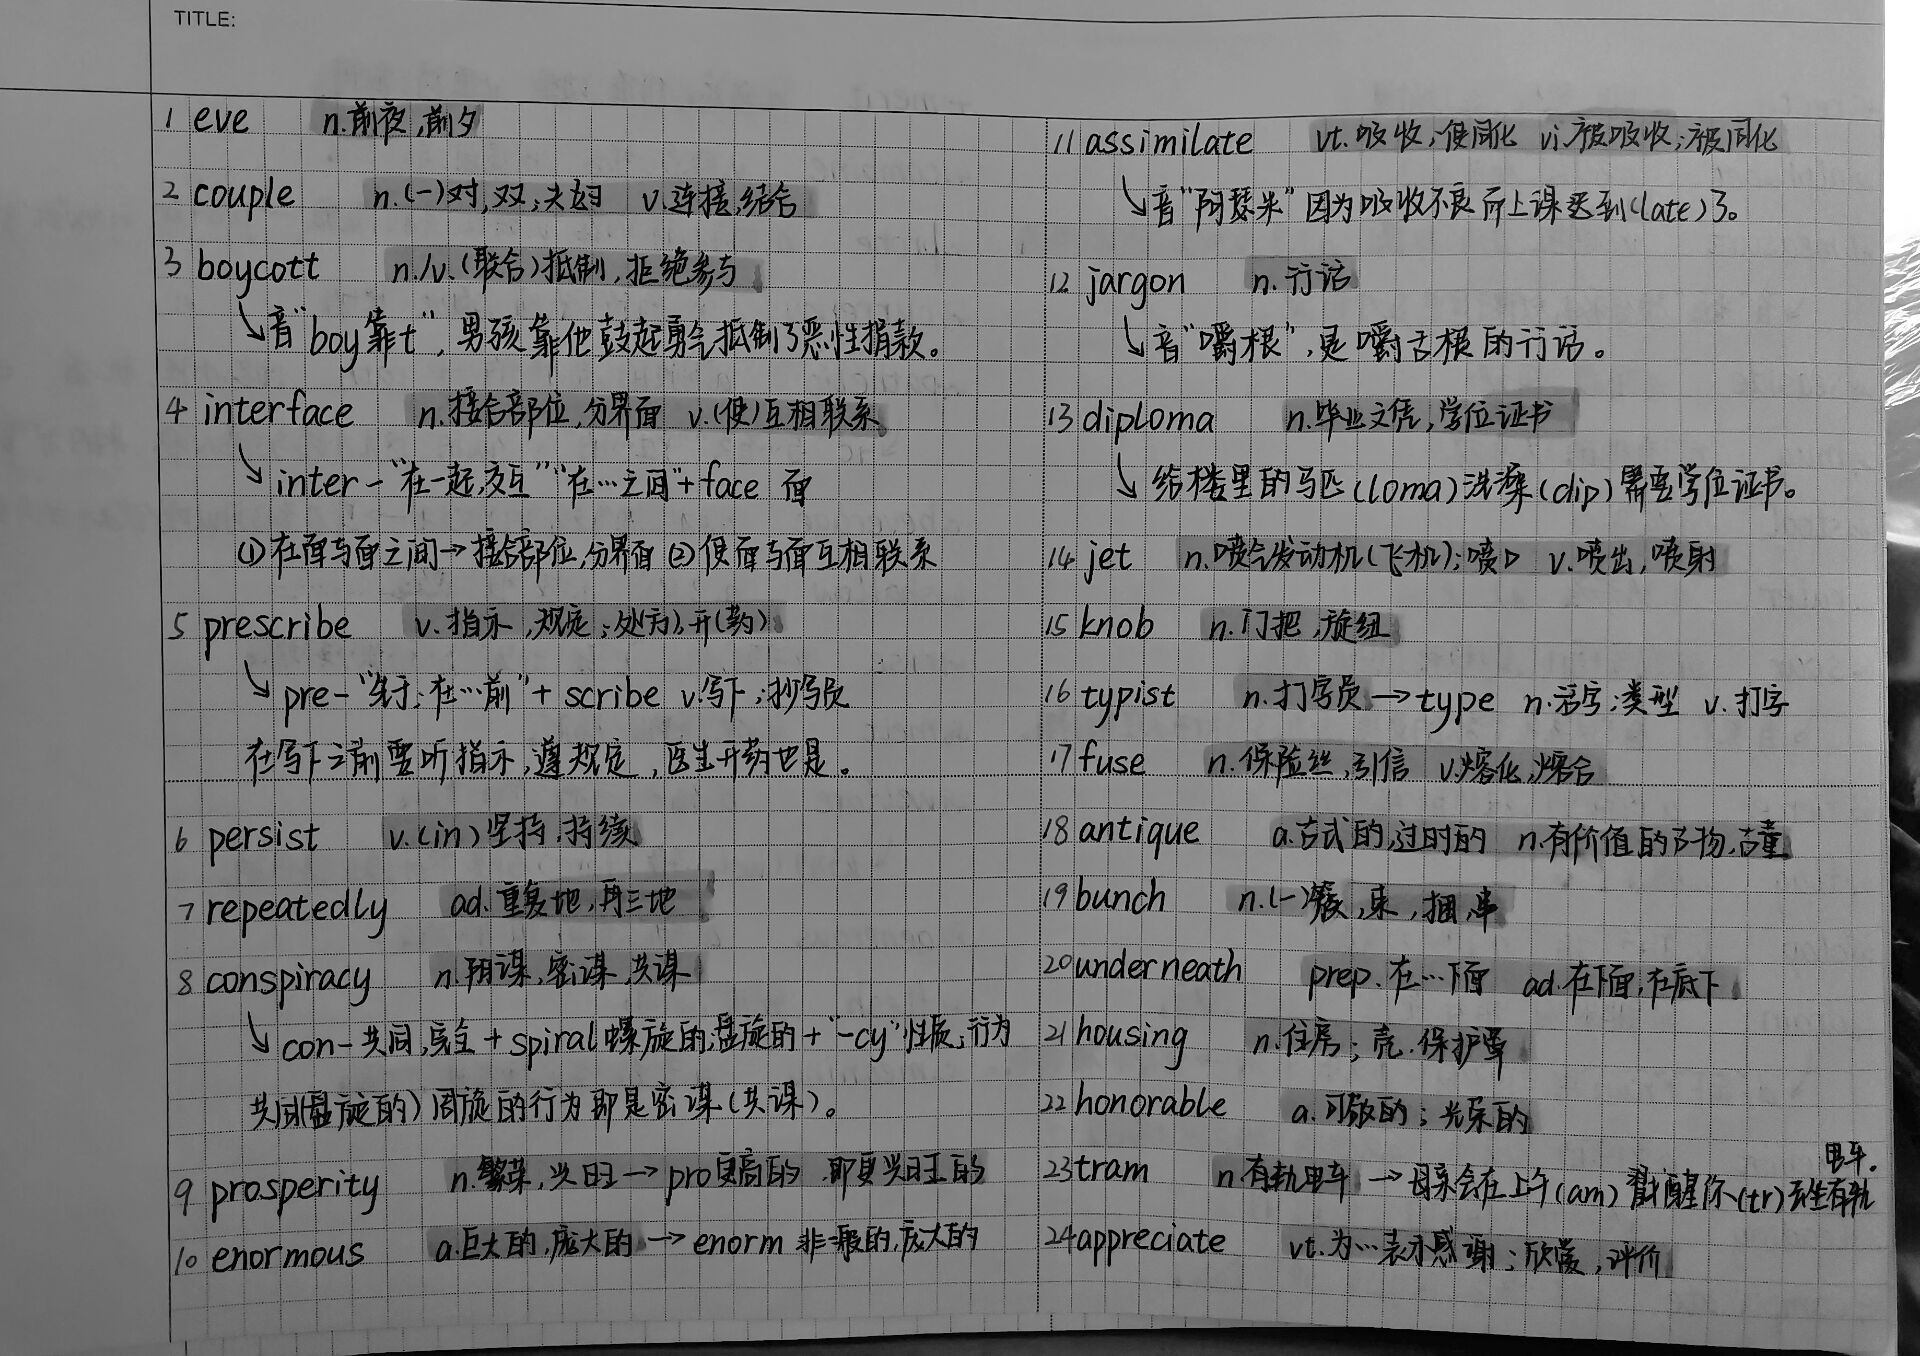 TITLE:
1 eve n.前夜,前夕
2 couple n.(一)对,双;夫妇 v.连接,结合
3 boycott n./v.(联合)抵制,拒绝参与
↘音"boy靠t",男孩靠他鼓起勇气抵制了恶性捐款。
4 interface n.接合部位,分界面 v.(使)互相联系
↘inter-"在一起,交互""在…之间"+face 面
①在面与面之间→接合部位,分界面②使面与面互相联系
5 prescribe v.指示,规定;处(方),开(药)
↘pre-"先于;在…前"+scribe v.写下;抄写员
在写下之前要听指示,遵规定,医生开药也是。
6 persist v.(in)坚持,持续
7 repeatedly ad.重复地,再三地
8 conspiracy n.阴谋,密谋,共谋
↘con-共同,完全+spiral螺旋的,盘旋的+"-cy"性质;行为
共同(盘旋的)周旋的行为即是密谋(共谋)。
9 prosperity n.繁荣,兴旺→pro更高的 即更兴旺的
10 enormous a.巨大的,庞大的→enorm非一般的,庞大的
11 assimilate vt.吸收;使同化 vi.被吸收;被同化
↘音"阿瑟米"因为吸收不良所上课迟到(late)了。
12 jargon n.行话
↘音"嚼根",是嚼舌根的行话。
13 diploma n.毕业文凭,学位证书
↘给楼里的马匹(loma)洗澡(dip)需要学位证书。
14 jet n.喷气发动机(飞机);喷口 v.喷出,喷射
15 knob n.门把,旋纽
16 typist n.打字员→type n.活字;类型 v.打字
17 fuse n.保险丝,引信 v.熔化,熔合
18 antique a.古式的,过时的 n.有价值的古物,古董
19 bunch n.(一)簇,束,捆,串
20 underneath prep.在…下面 ad.在下面,在底下
21 housing n.住房;壳.保护罩
22 honorable a.可敬的;光荣的
23 tram n.有轨电车→母亲会在上午(am)戳醒你(tr)去坐有轨
电车.
24 appreciate vt.为…表示感谢;欣赏,评价